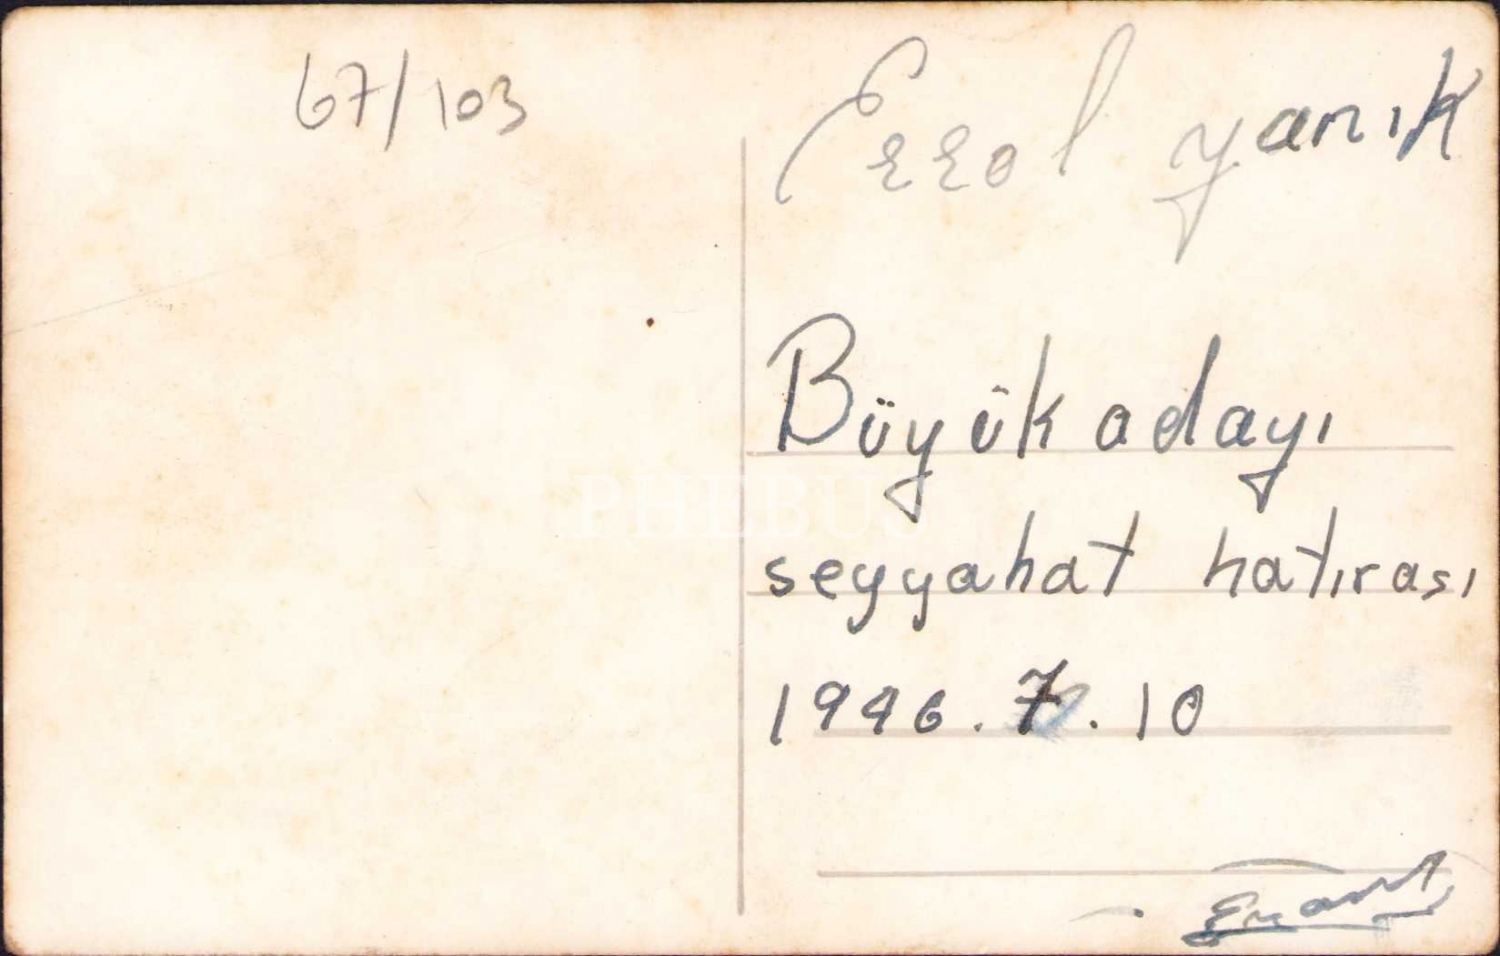 67/103
Errol yanık
Büyük adayı
seyyahat hatırası
1946.7.10
PHEBUS